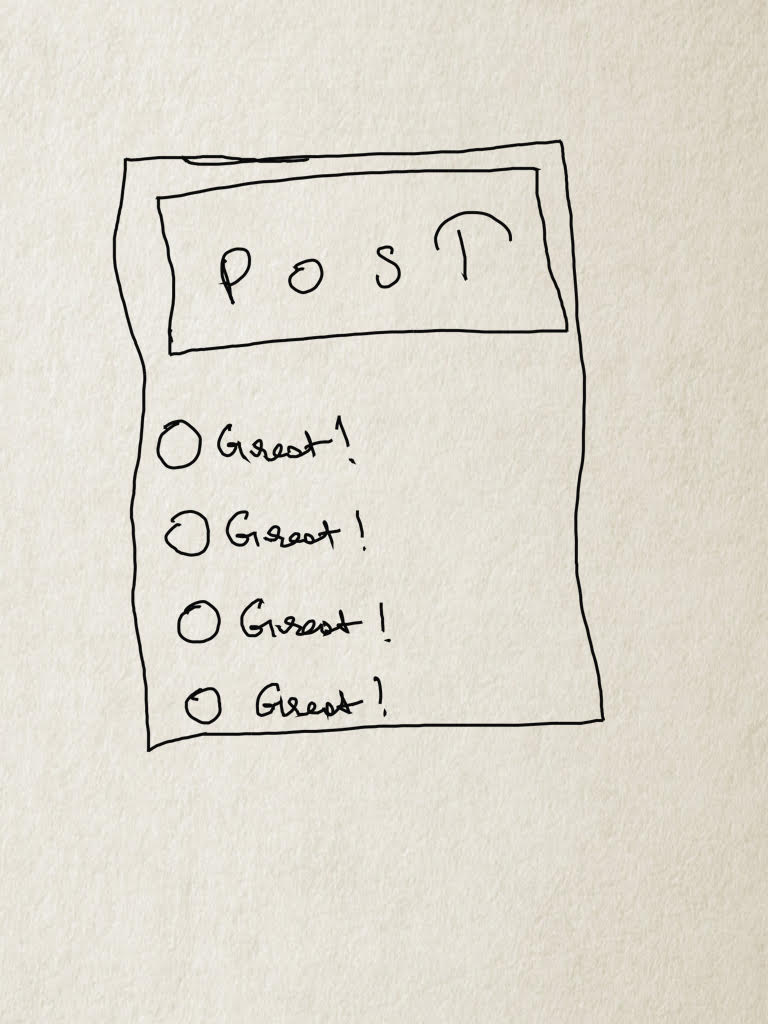 POST
Great!
Great!
Great!
Great!